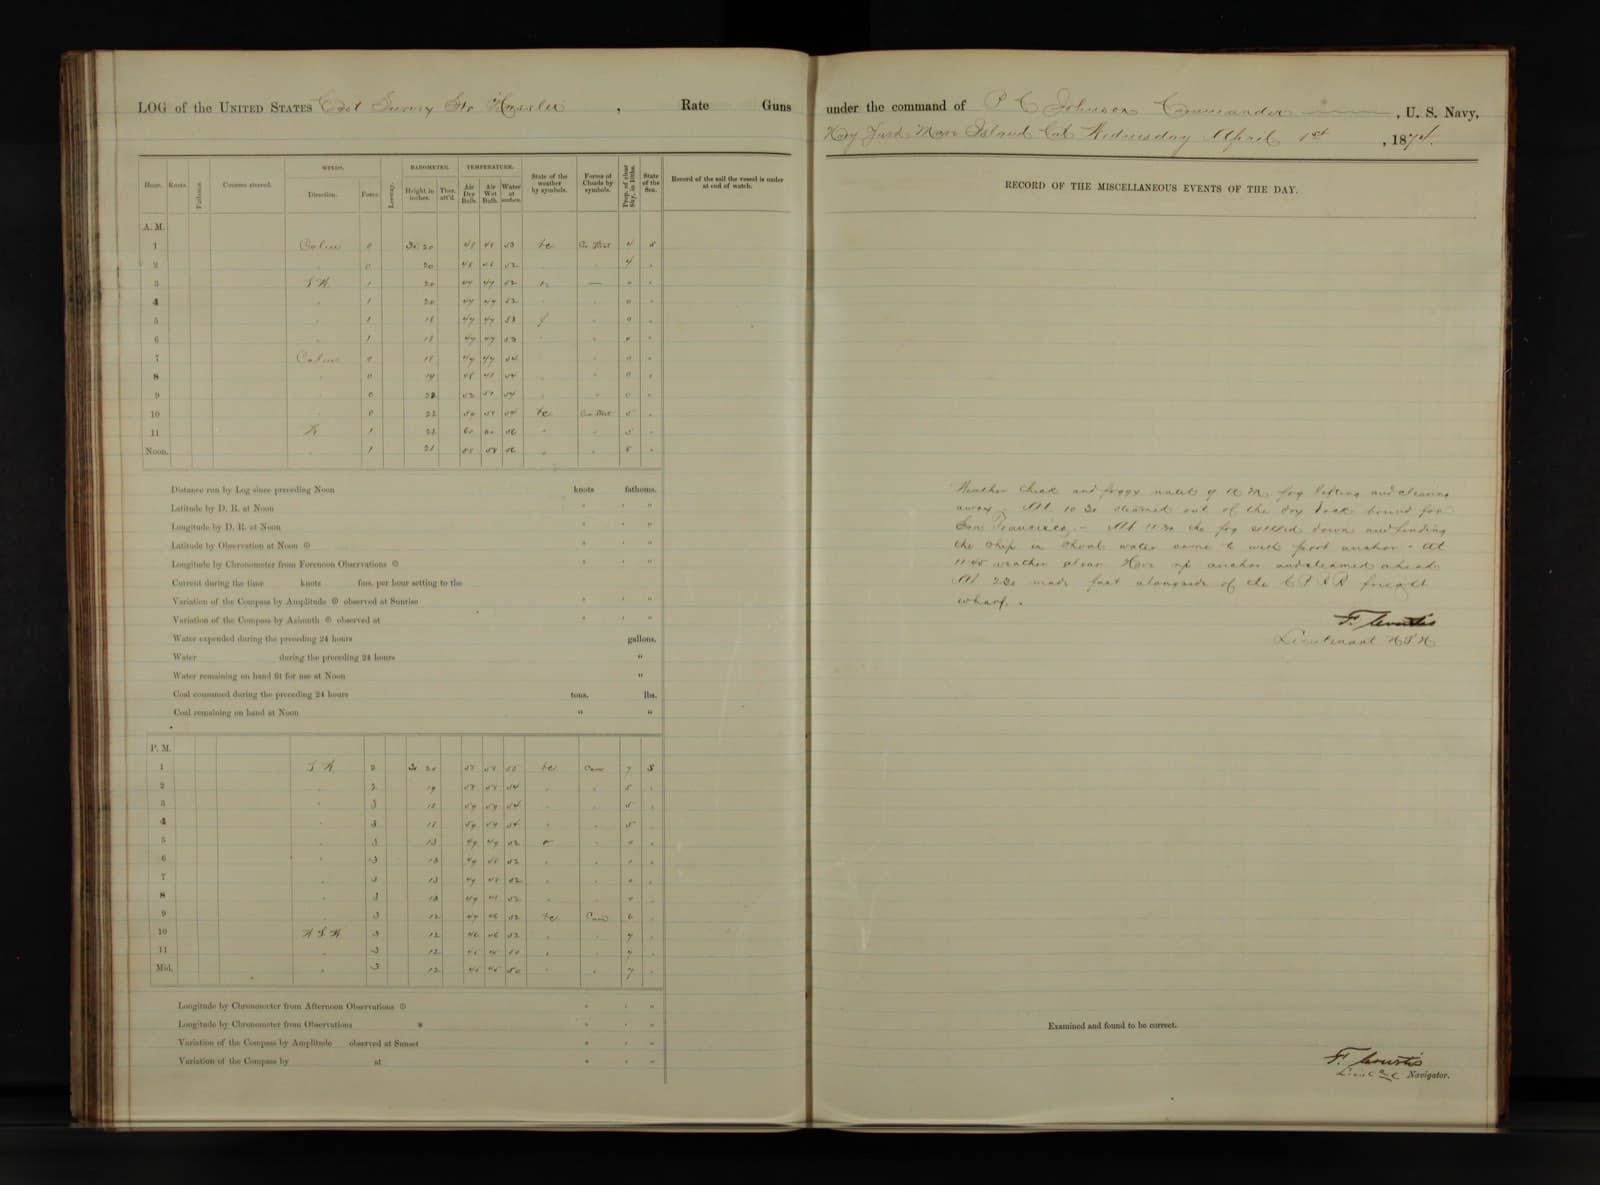 LOG of the UNITED STATES Cost Survey Str Hassler , Rate Guns
Hour. Knots. Fathoms. Courses steered. WINDS. Direction. Force. Leeway. BAROMETER. Height in inches. Ther. att'd. TEMPERATURE. Air Dry Bulb. Air Wet Bulb. Water at surface. State of the weather by symbols. Forms of Clouds by symbols. Prop. of clear Sky, in 10ths. State of the Sea. Record of the sail the vessel is under at end of watch.
A. M.
1 Calm 0 30 20 48 48 53 bc 4
2 0 20 48 48 52 4
3 1 20 47 47 52 — 0
4 1 20 47 47 52 0
5 1 18 47 47 53 f 0
6 1 18 47 47 53 0
7 Calm 0 18 47 47 54 0
8 0 19 48 48 54 0
9 0 22 52 51 54 0
10 0 22 54 bc 5
11 1 22 60 60 56 5
Noon. 1 21 58 58 56 5
Distance run by Log since preceding Noon knots fathoms.
Latitude by D. R. at Noon ° ' "
Longitude by D. R. at Noon ° ' "
Latitude by Observation at Noon ⊙ ° ' "
Longitude by Chronometer from Forenoon Observations ⊙ ° ' "
Current during the time knots fms. per hour setting to the
Variation of the Compass by Amplitude ⊙ observed at Sunrise ° ' "
Variation of the Compass by Azimuth ⊙ observed at ° ' "
Water expended during the preceding 24 hours gallons.
Water during the preceding 24 hours "
Water remaining on hand fit for use at Noon "
Coal consumed during the preceding 24 hours tons. lbs.
Coal remaining on hand at Noon " "
P. M.
1 S W 2 30 20 58 58 55 bc Cum 7 S
2 2 19 58 58 54 5
3 3 18 59 59 54 5
4 3 18 59 59 54 5
5 3 13 49 49 52 0
6 3 13 49 48 52
7 3 13 49 48 52
8 3 13 49 52
9 3 12 47 46 52 bc Cum 6
10 W S W 3 12 46 46 52 7
11 3 12 50 7
Mid. 3 12 45 45 50 7
Longitude by Chronometer from Afternoon Observations ⊙ ° ' "
Longitude by Chronometer from Observations * ° ' "
Variation of the Compass by Amplitude observed at Sunset ° ' "
Variation of the Compass by at ° ' "
under the command of P C Johnson Commander , U. S. Navy,
Navy Yard Mare Island Cal Wednesday April 1st , 1874.
RECORD OF THE MISCELLANEOUS EVENTS OF THE DAY.
Weather thick and foggy until 9 A M, fog lifting and clearing
away. At 10 30 steamed out of the dry dock bound for
San Francisco. – At 11.30 the fog settled down and finding
the ship in shoal water came to with port anchor – At
11 45 weather clear Hove up anchor and steamed ahead
At 2.30 made fast alongside of the C P R R freight
wharf.
F. Courtis
Lieutenant U.S.N
Examined and found to be correct.
F. Courtis
Lieut and Navigator.